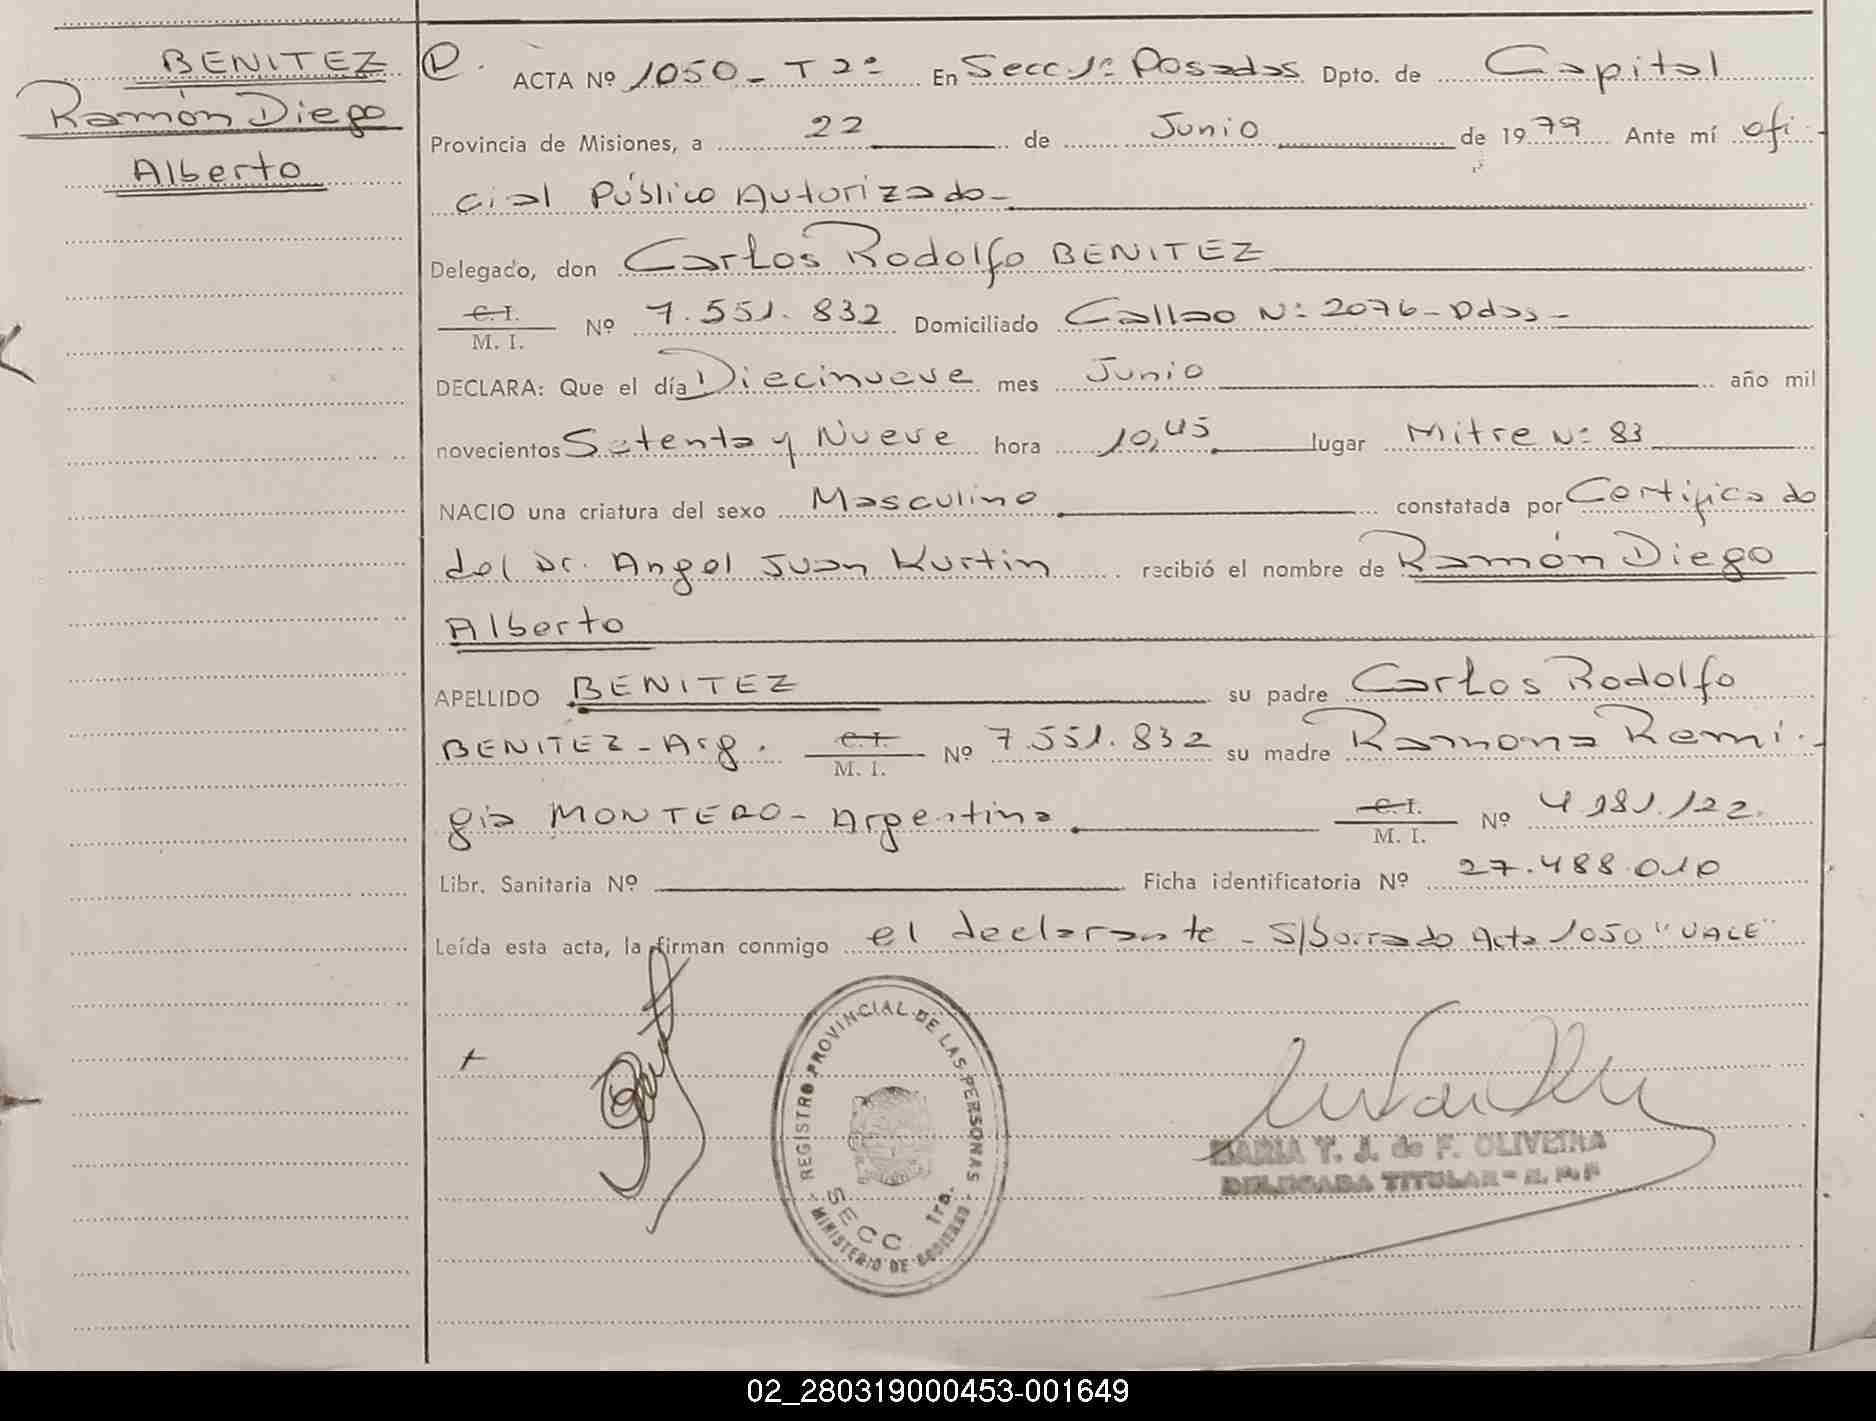 BENITEZ
Ramón Diego
Alberto
ACTA Nº 1050 - T 2º En Secc 1º Posadas Dpto. de Capital
Provincia de Misiones, a 22 de Junio de 1979 Ante mí ofi-
cial Público Autorizado -
Delegado, don Carlos Rodolfo BENITEZ
C. I.
M. I. Nº 7.551.832 Domiciliado Callao Nº 2076 - Pdas -
DECLARA: Que el día Diecinueve mes Junio año mil
novecientos Setenta y Nueve hora 10,45 lugar Mitre Nº 83
NACIO una criatura del sexo Masculino constatada por Certificado
del Dr. Angel Juan Kurtin recibió el nombre de Ramón Diego
Alberto
APELLIDO BENITEZ su padre Carlos Rodolfo
BENITEZ - Arg. C. I.
M. I. Nº 7.551.832 su madre Ramona Remi-
gia MONTERO - Argentina C. I.
M. I. Nº 4.181.122.
Libr. Sanitaria Nº Ficha identificatoria Nº 27.488.010
Leída esta acta, la firman conmigo el declarante - S/borrado Acta 1050 "VALE"
REGISTRO PROVINCIAL DE LAS PERSONAS
SECC. 1ra.
MINISTERIO DE GOBIERNO
MARIA Y. J. de F. OLIVEIRA
DELEGADA TITULAR - R. P. P
02_280319000453-001649